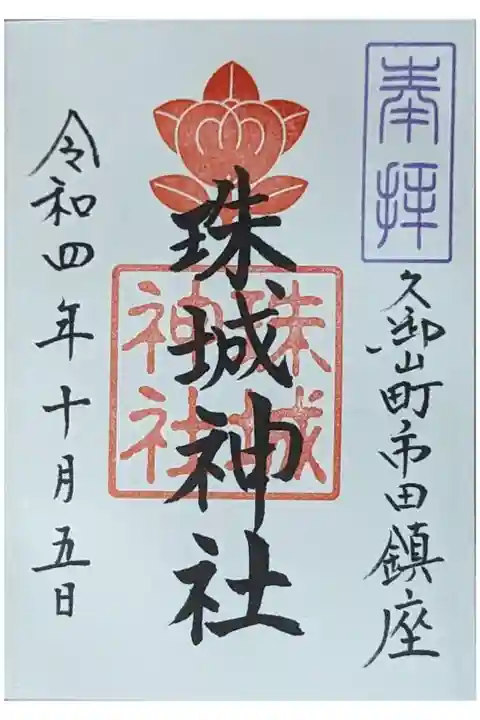 奉拝
久御山町市田鎮座
珠城神社
珠城
神社
令和四年十月五日